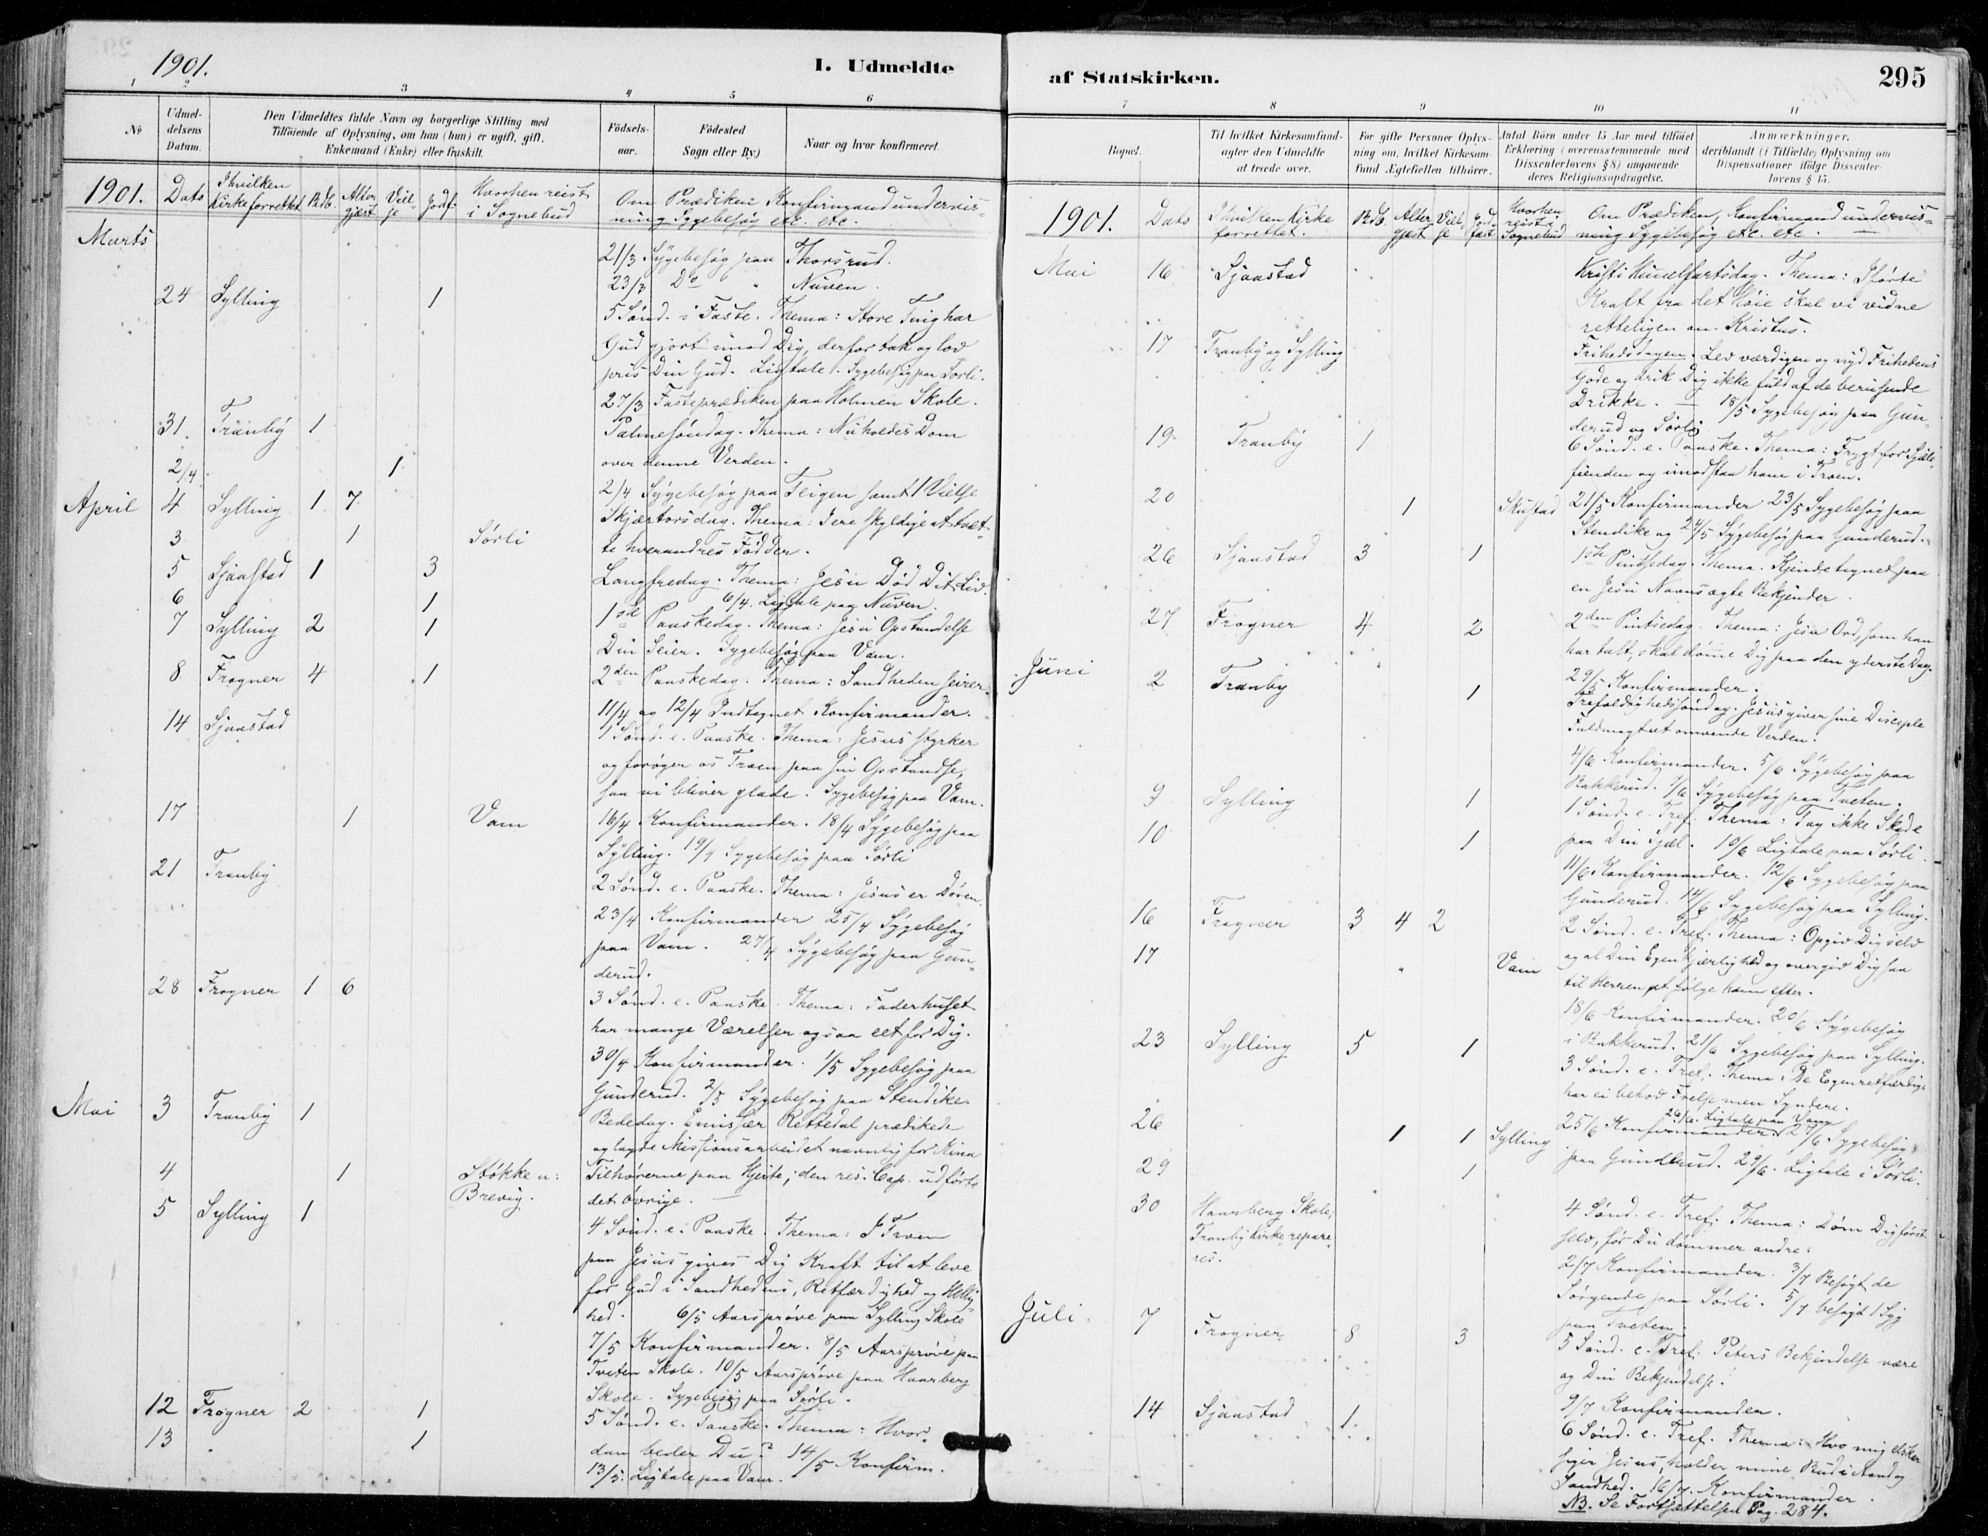 1901.
I. Udmeldte
1
2
3
4
5
6
№
Udmel-
delsens
Datum.
Den Udmeldtes fulde Navn og borgerlige Stilling med
Tilføiende af Oplysning, om han (hun) er ugift, gift,
Enkemand (Enke) eller fraskilt.
Fødsels-
aar.
Fødested
Sogn eller By.)
Naar og hvor konfirmeret.
1901. Dato I hvilken Kirke forrettet Bdb. Altergjæst Vielse Jordf. Hvorhen reist i Sognebud Om Prædiken Konfirmandundervis-
ning Sygebesøg etc. etc.
Marts
21/3 Sygebesøg paa Thorsrud.
23/3 Do " Nuven.
24 Sylling 1 5 Sønd. i Faste. Thema: Store Ting har
Gud gjort imod Dig, derfor tak og lov
pris Din Gud. Ligtale. Sygebesøg paa Sørli.
27/3 Fasteprædiken paa Holmen Skole.
31. Tranby 1 Palmesøndag. Thema: Nu holdes Dom
over denne Verden.
2/4 1 2/4 Sygebesøg paa Teigen samt 1 Vielse
April 4 Sylling 1. 7. Skjærtorsdag. Thema: I ere skyldige at toæt-
3 1 Sørli te hverandres Fødder.
5 Sjaastad 1 3 Langfredag. Thema: Jesu Død Dit Liv.
6 1 6/4. Ligtale paa Nuven.
7 Sylling 2 1 1ste Paaskedag. Thema: Jesu Opstandelse
Din Seier. Sygebesøg paa Vam.
8 Frogner 4 1 2den Paaskedag. Thema: Sandheden seirer.
11/4 og 12/4 Indtegnet Konfirmander.
14 Sjaastad 1 Sønd. e. Paaske. Thema: Jesus styrker
og forøger os Troen paa sin Opstandelse,
saa vi bliver glade. Sygebesøg paa Vam.
17 1 Vam 16/4 Konfirmander. 18/4 Sygebesøg paa
Sylling. 19/4 Sygebesøg paa Sørli
21 Tranby 2 Sønd. e. Paaske. Thema: Jesus er Døren.
23/4 Konfirmander 25/4 Sygebesøg
paa Vam. 27/4 Sygebesøg paa Gun-
derud.
28 Frogner 1 6 3 Sønd. e. Paaske. Thema: Faderhuset
har mange Værelser ogsaa eet for Dig.
30/4 Konfirmander. 1/5 Sygebesøg paa
Gunderud. 2/5 Sygebesøg paa Stendike.
Mai 3 Tranby 1 Bededag. Emissær Rettedal prædikede
og lagde Missionsarbeidet navnlig for Kina
4 1 Støkke u: Tilhørerne paa Hjerte; den res. Cap. udførte
Brevig. det øvrige.
5 Sylling 1 4 Sønd. e. Paaske. Thema: I Troen
paa Jesus gives Dig Kraft til at leve
for Gud i Sandhedens, Retfærdighed og Hellig-
hed. 6/5 Aarsprøve paa Sylling Skole
7/5 Konfirmander. 8/5 Aarsprøve paa
Tveten Skole. 10/5 Aarsprøve paa Haarberg
Skole. Sygebesøg paa Sørli.
12 Frogner 2 1 5 Sønd. e. Paaske. Thema: Hvor-
13 1 dan beder Du? 14/5 Konfirm.
13/5. Ligtale paa Vam.
af Statskirken.
295
7
8
9
10
11
Bopæl.
Til hvilket Kirkesamfund
agter den Udmeldte
at træde over.
For gifte Personer Oplys-
ning om, hvilket Kirkesam-
fund Ægtefællen tilhører.
Antal Børn under 15 Aar med tilføiet
Erklæring (overensstemmende med
Dissenterlovens § 8) angaaende
deres Religionsopdragelse.
Anmærkninger,
deriblandt (i Tilfælde) Oplysning om
Dispensationer ifølge Dissenter-
lovens § 15.
1901. Dato I hvilken Kirke forrettet. Bdb. Altergjæst Vielse Jordfæst Hvorhen reist i Sognebud Om Prædiken, Konfirmandundervis-
ning Sygebesøg etc. etc.
Mai 16 Sjaastad Kristi Himmelfartsdag. Thema: Iførte
Kraft fra det Høie skal vi vidne
retteligen om Kristus.
17 Tranby og Sylling Frihedsdagen. Lev værdigen og nyd Frihedens
Gode og drik Dig ikke fuld af de berusende
Drikke. 18/5 Sygebesøg paa Gun-
derud og Sørli
19. Tranby 1 6 Sønd. e. Paaske. Thema: Frygt for Sjæle-
fienden og imodstaa ham i Troen.
20 1 Skustad 21/5 Konfirmander 23/5 Sygebesøg paa
Stendike og 24/5 Sygebesøg paa Gunderud.
26 Sjaastad 3 1 1ste Pintsedag. Thema. Kjendetegnet paa
en Jesu Navns ægte Bekjender.
27 Frogner 4 2 2den Pintsedag. Thema: Jesu Ord, som han
har talt, skal dømme Dig paa den yderste Dag.
29/5 Konfirmander.
Juni 2 Tranby 1 Trefoldighedssøndag. Jesus giver sine Disciple
Fuldmagt at omvende Verden.
4/6 Konfirmander. 5/6 Sygebesøg paa
Bakkerud. 7/6 Sygebesøg paa Tveten.
9 Sylling 1 1 Sønd. e. Tref. Thema: Tag ikke Skade
10 1 paa Din Sjæl. 10/6 Ligtale paa Sørli.
11/6 Konfirmander. 12/6 Sygebesøg paa
Gunderud. 14/6 Sygebesøg paa Sylling.
16 Frogner 3 4 2 2 Sønd. e. Tref. Thema: Opgiv Dig selv
17 " Vam og al Din Egenkjærlighed og overgiv Dig saa
til Herren at følge ham efter.
18/6 Konfirmander. 20/6 Sygebesøg
i Bakkerud. 21/6 Sygebesøg paa Sylling.
23 Sylling 5 1 3 Sønd. e. Tref. Thema: De Egenretfærdige
har ei behov Frelse men Syndere.
26/6. Ligtale paa Vam
26 1 1 Sylling 25/6 Konfirmander 27/6. Sygebesøg
29 1 paa Gunderud. 29/6. Ligtale i Sørli.
30 Haarberg Skole, 4 Sønd. e. Tref. Thema: Døm Dig først
Tranby Kirke repare- selv, før Du dømmer andre.
res. 2/7 Konfirmander. 3/7 Besøgt de
Sørgende paa Sørli. 5/7 besøgt 1 Syg
paa Tveten.
Juli. 7 Frogner 8 3 5 Sønd. e. Tref. Peters Bekjendelse være
og Din Bekjendelse.
9/7 Konfirmander.
14 Sjaastad 1. 6 Sønd. e. Tref. Thema: Hvo mig elsker
siger Jesus, holder mine Bud i Aand og
Sandhed. 16/7. Konfirmander.
NB. Se Fortsættelsen Pag. 284.